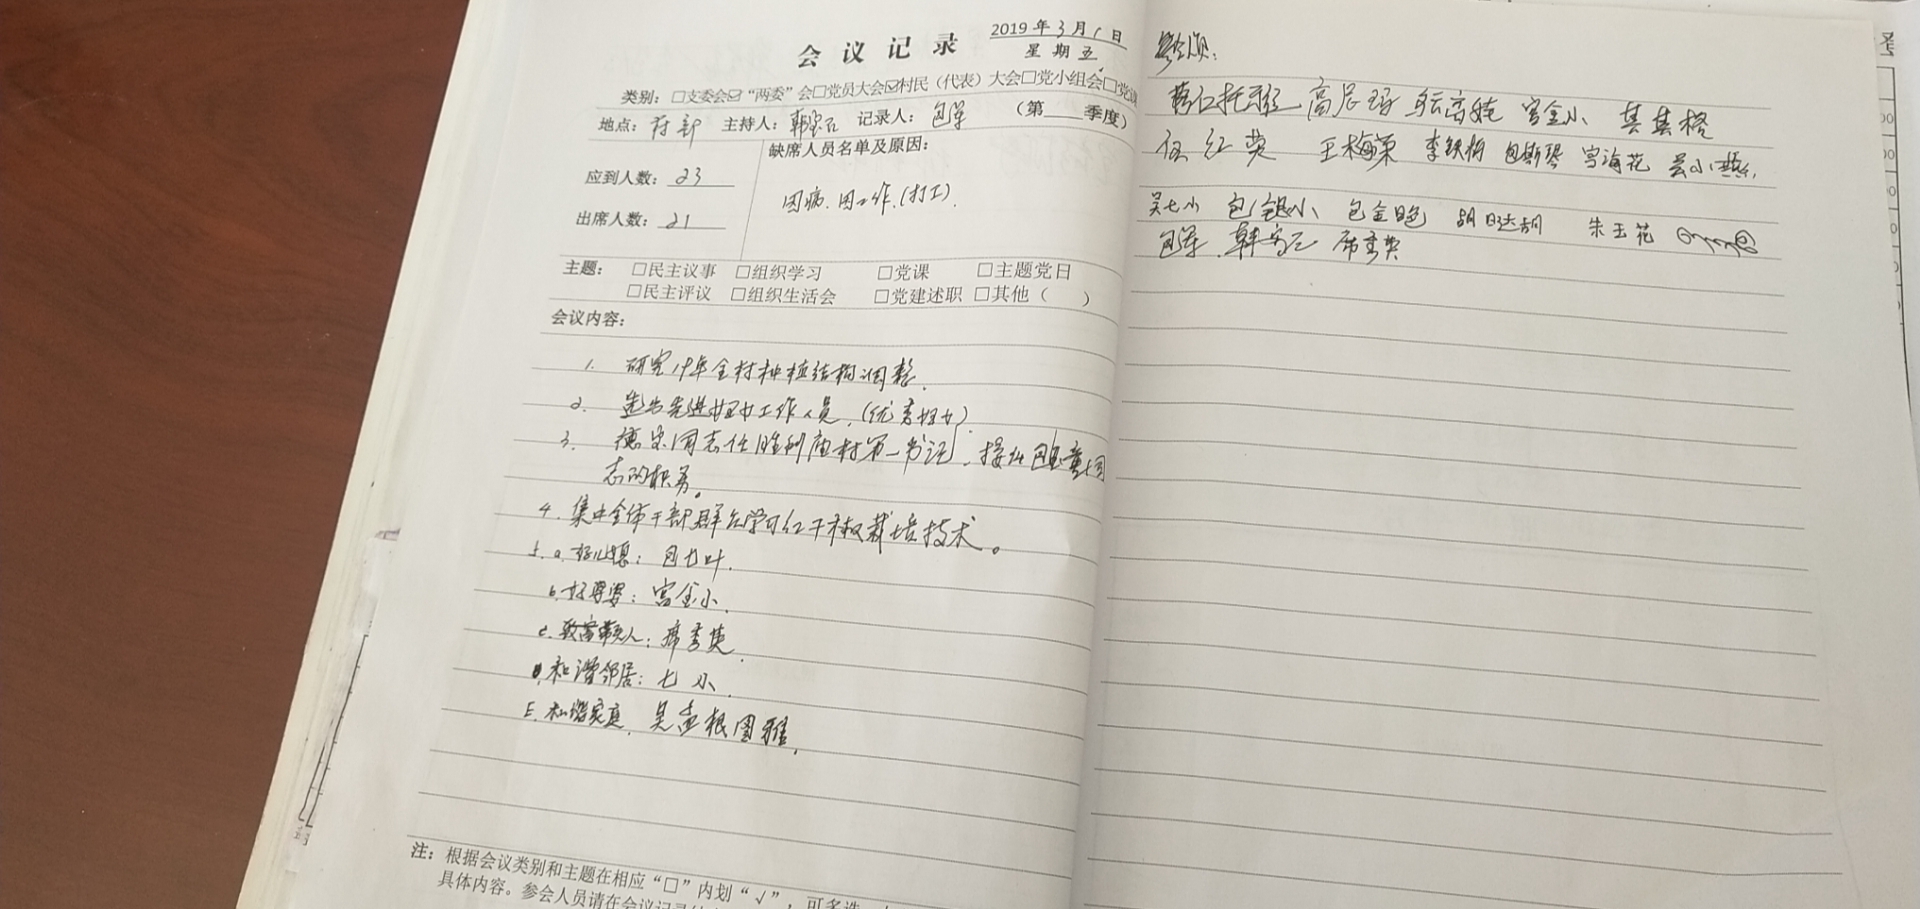 会议记录
2019年3月1日
星期五
类别：□支委会☑“两委”会□党员大会☑村民（代表）大会□党小组会□党课
地点：村部 主持人：韩宝石 记录人：包军 （第 季度）
应到人数：23
缺席人员名单及原因：
因病.因工作.(打工).
出席人数：21
主题：□民主议事 □组织学习 □党课 □主题党日
□民主评议 □组织生活会 □党建述职 □其他（ ）
会议内容：
1. 研究19年全村种植结构调整.
2. 选出先进妇女工作人员.(优秀妇女).
3. 同志任胜利庙村第一书记，接任包同
志的职务。
4. 集中全体干部群众学习红干椒栽培技术。
5. a.好儿媳：包七叶.
b.好婆婆：宫金小.
c.致富带头人：席秀英.
D.和谐邻居：七小.
E.和谐家庭.吴孟根图雅.
高尼玛 宫金小 其其格
伍红英 王梅荣 李铁梅 包斯琴 宫海花 吴小燕.
吴七小 包银小 包金良 胡日达胡 朱玉花
包军.韩宝石 席秀英
注：根据会议类别和主题在相应“□”内划“√”，可多选
具体内容。参会人员请在会议记录